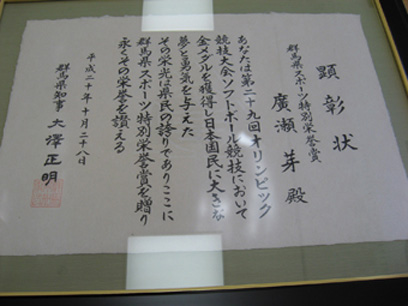 顕彰状
群馬県スポーツ特別栄誉賞
廣瀬芽殿
あなたは第二十九回オリンピック
競技大会ソフトボール競技において
金メダルを獲得し日本国民に大きな
夢と勇気を与えた
その栄光は県民の誇りでありここに
群馬県スポーツ特別栄誉賞を贈り
永くその栄誉を讃える
平成二十年十月二十八日
群馬県知事 大澤正明